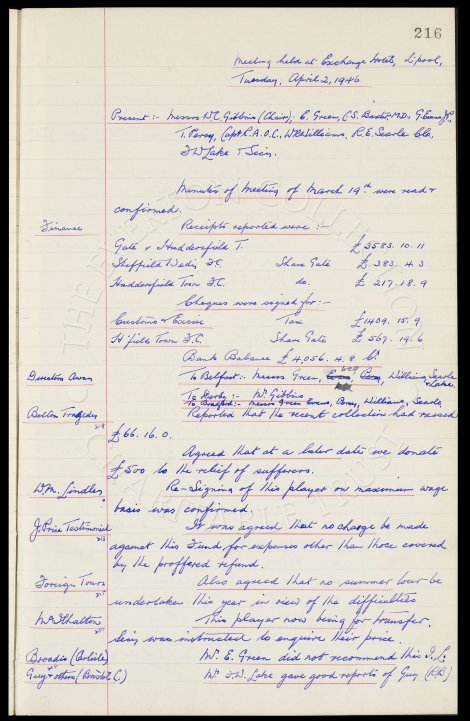 216
Meeting held at Exchange Hotel, L'pool,
Tuesday, April 2, 1946
Present :- Messrs W.C. Gibbins (Chair), E. Green, C.S. Baxter M.D., G. Evans J.P.,
T. Percy, Capt. A.O.C., W.R. Williams, R.E. Searle Cllr,
J.W. Lake & Secy.
Minutes of Meeting of March 19th were read &
confirmed.
Finance Receipts reported were :-
Gate v Huddersfield T. £3583. 10. 11
Sheffield Wedy F.C. Share Gate £ 383. 4. 3
Huddersfield Town F.C. do. £ 217. 18. 9
Cheques were signed for :-
Customs & Excise Tax £1409. 15. 9
H'field Town F.C. Share Gate £ 567. 19. 6
Bank Balance £4,056. 4. 8 Cr
Directors Away To Belfast :- Messrs Green, Percy, Williams, Searle
& Lake.
To Derby :- Mr Gibbins
To Bradford :- Messrs Green Evans, Percy, Williams, Searle,
Bolton Tragedy Reported that the recent collection had raised
218
£66. 16. 0.
Agreed that at a later date we donate
£500 to the relief of sufferers.
W.M. Lindley Re-Signing of this player on maximum wage
basis was confirmed.
J. Price Testimonial It was agreed that no charge be made
213
against this Fund for expenses other than those covered
by the proffered refund.
Foreign Tours Also agreed that no summer tour be
215
undertaken this year in view of the difficulties
McIlhatton This player now being for transfer,
215
Secy was instructed to enquire their price.
Broadis (Carlisle) Mr. E. Green did not recommend this I.L.
Guy & others (Bristol C.) Mr J.W. Lake gave good reports of Guy (R.B.)
THE EVERTON COLLECTION
CHARITABLE TRUST